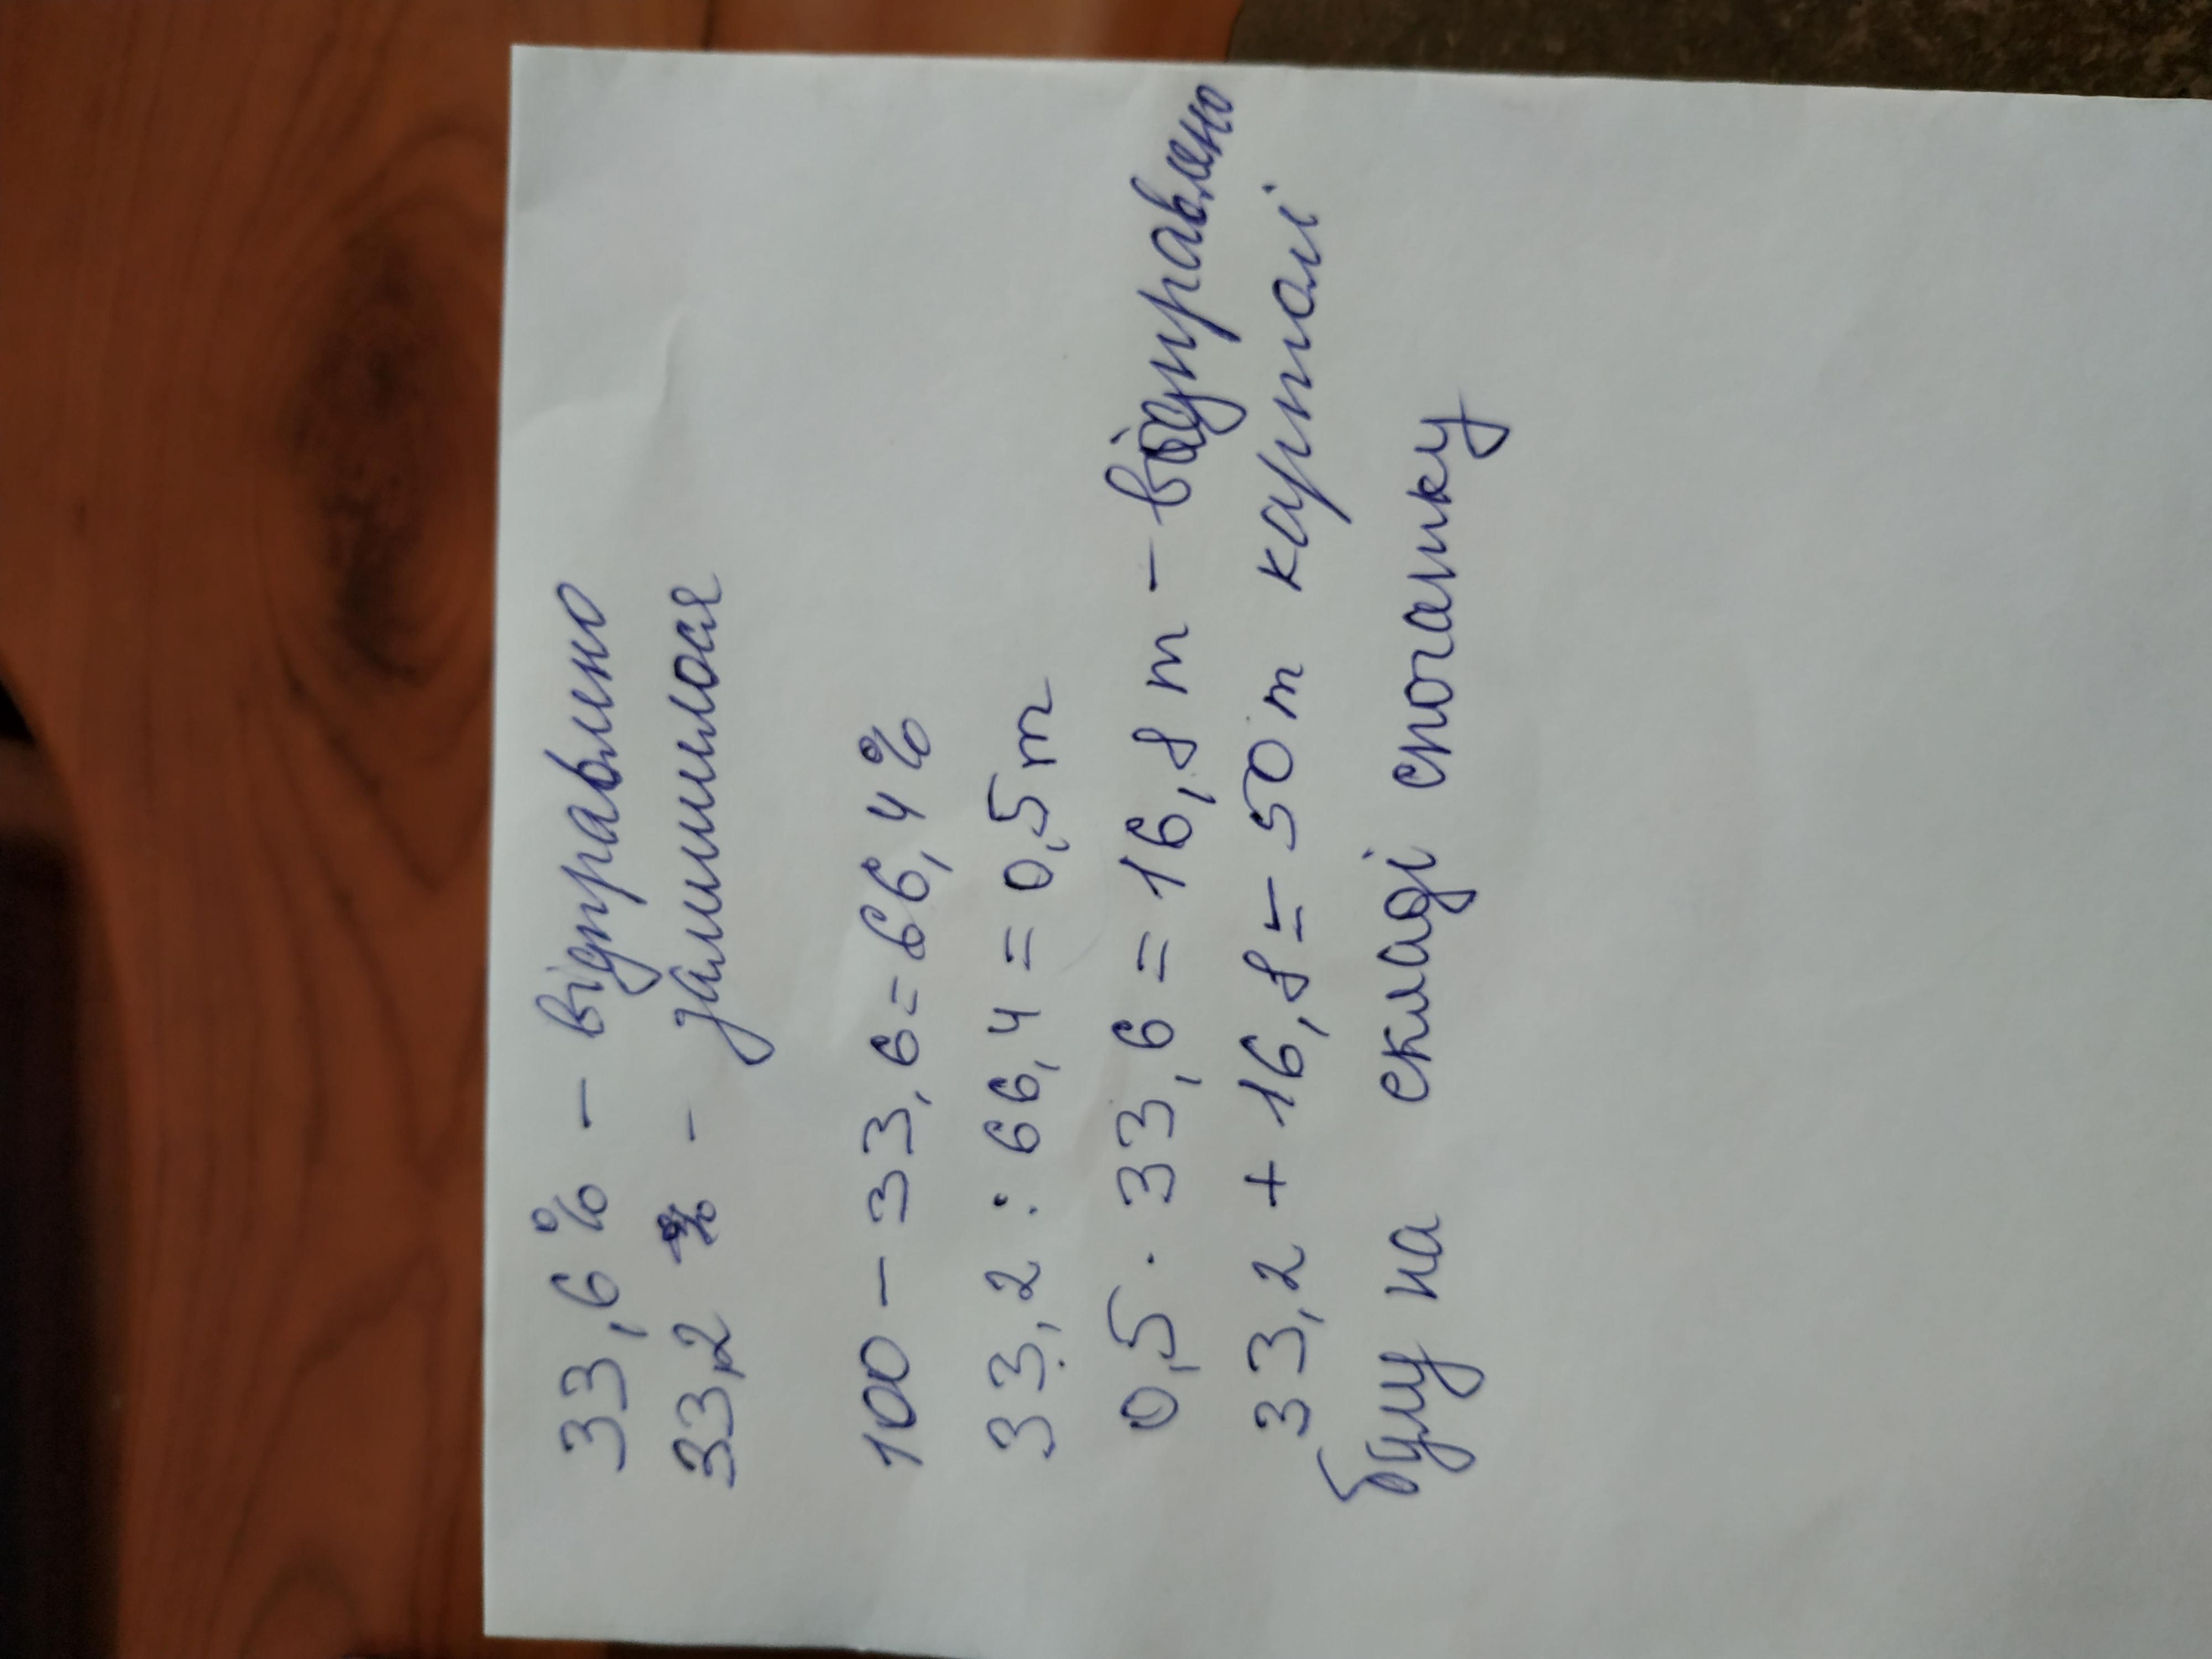 33,6% - відправлено
33,2 - залишилося
100 - 33,6 = 66,4%
33,2 : 66,4 = 0,5 т
0,5 · 33,6 = 16,8 т - відправлено
33,2 + 16,8 = 50 т картолі
булу на складі спочатку